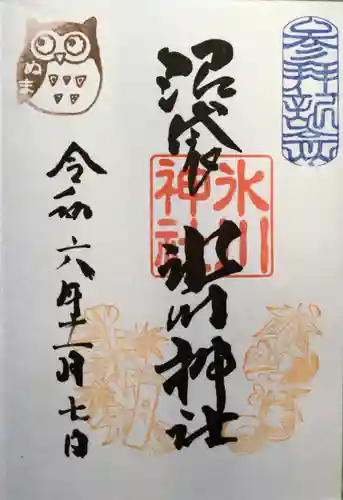 参拝記念
沼袋 氷川神社
氷川神社
令和六年十一月七日
ぬま